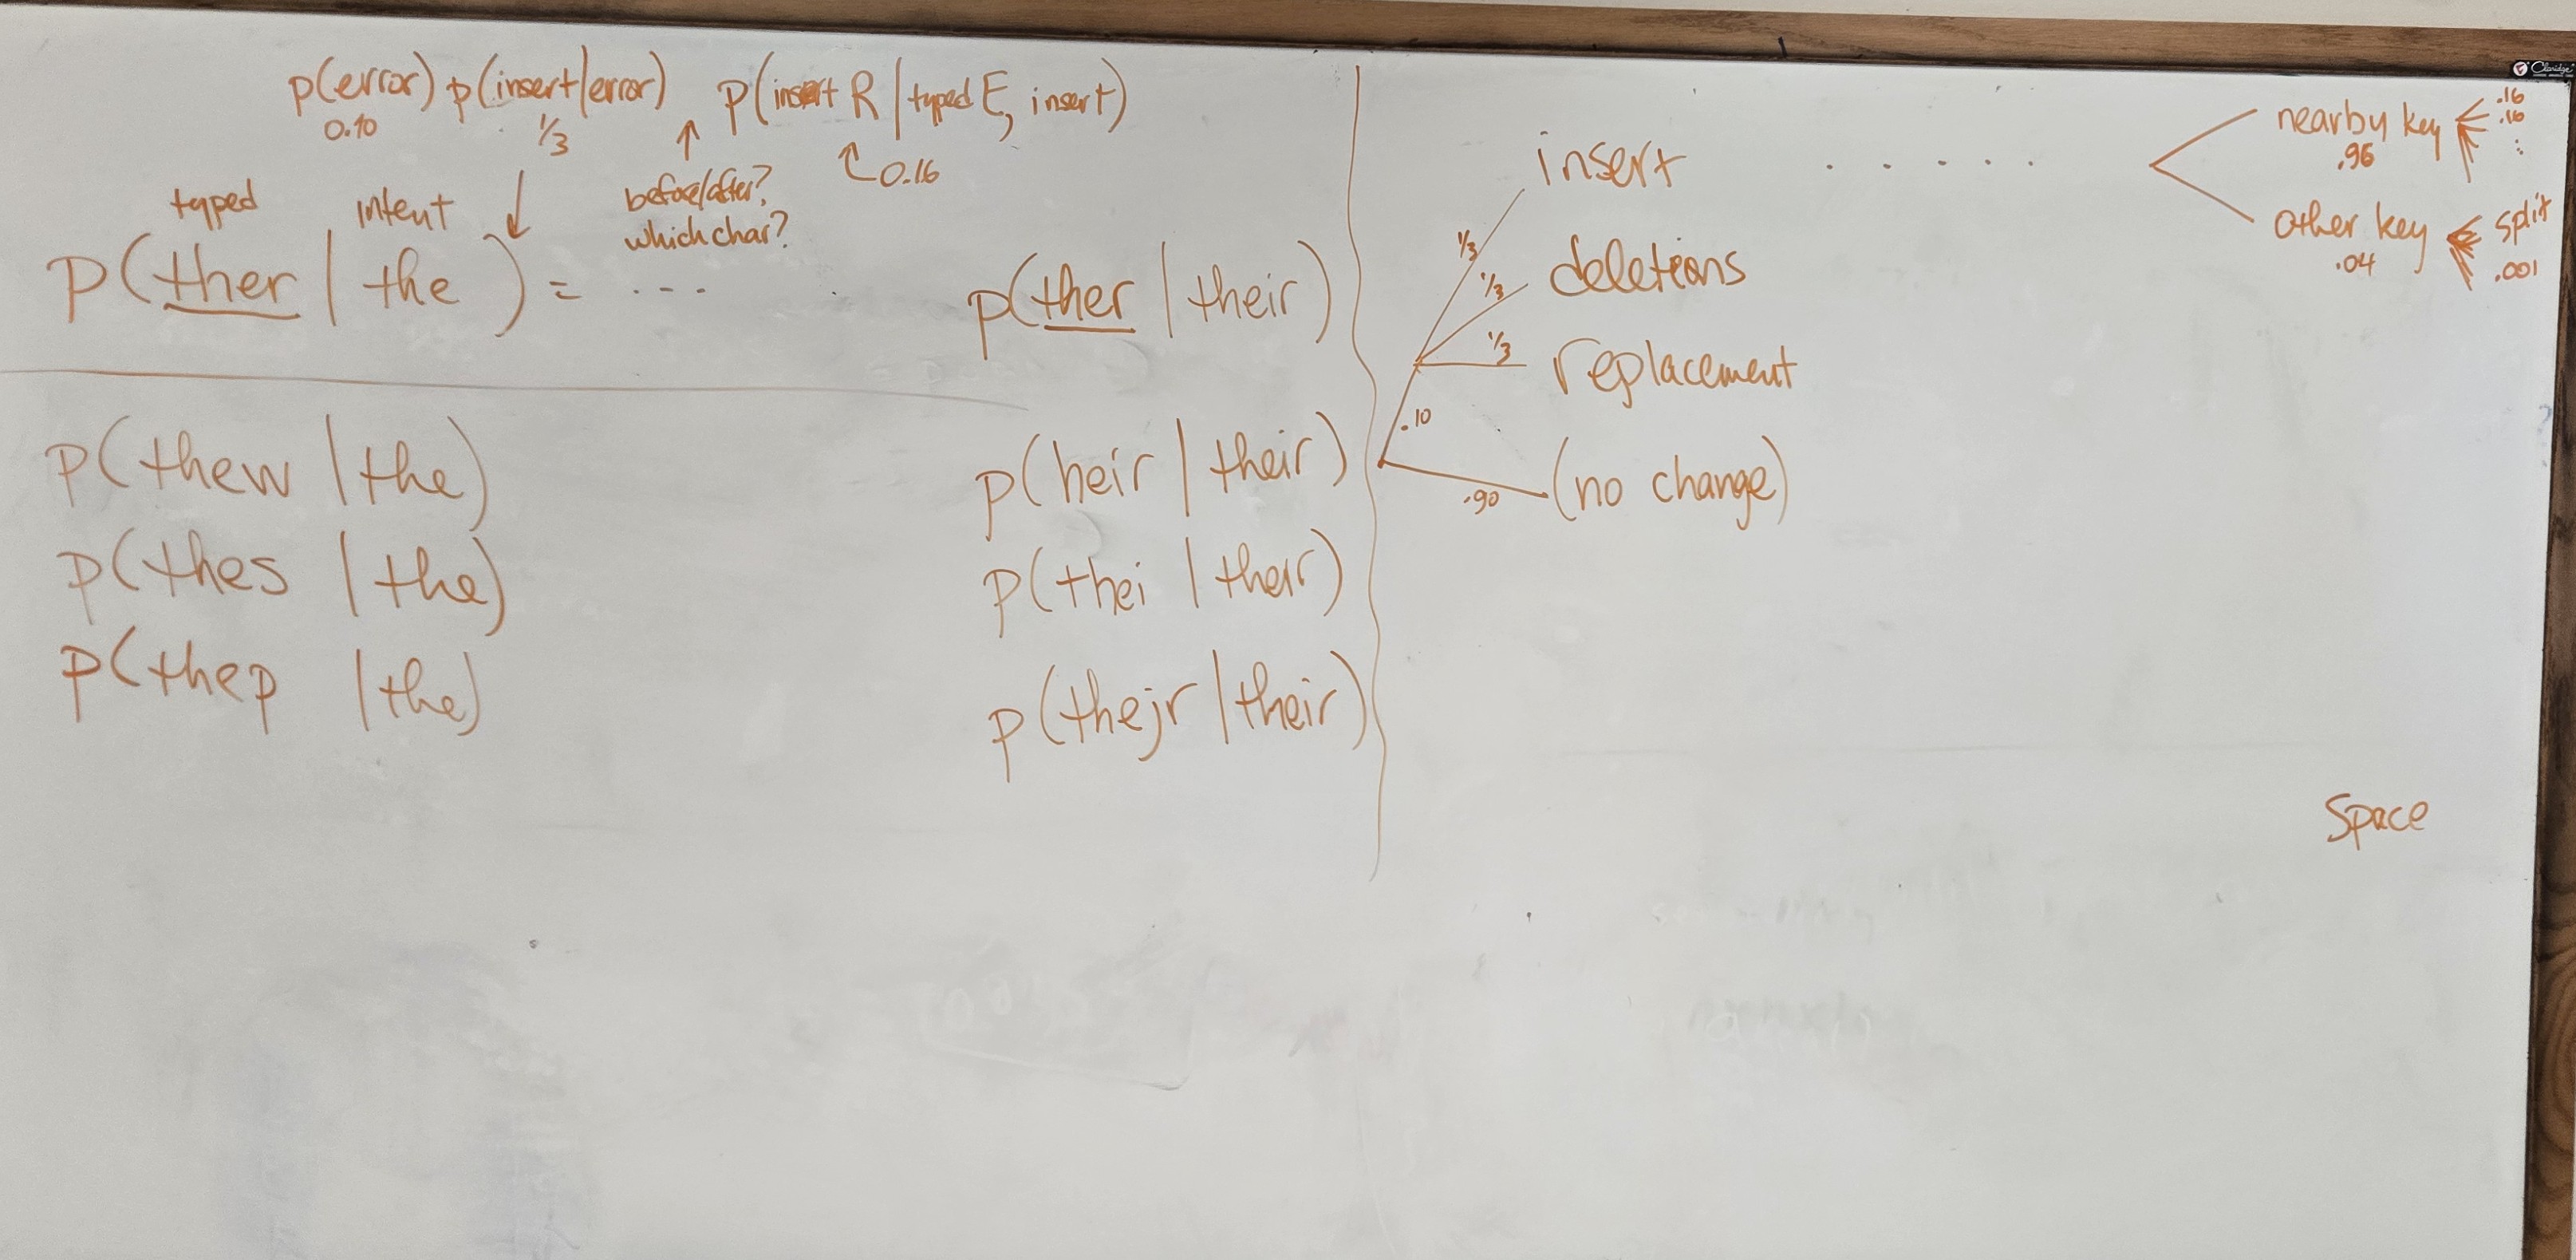 p(error) p(insert|error) p(insert R | typed E, insert)
0.10 1/3 0.16
typed intent
before/after?
which char?
p(ther | the) = ...
p(ther | their)
p(thew | the)
p(thes | the)
p(thep | the)
p(heir | their)
p(thei | their)
p(thejr | their)
insert . . . . .
1/3
deletions
1/3
replacement
1/3
.10
(no change)
.90
nearby key
.96
.16
.16
other key
.04
split
.001
Space
Claridge